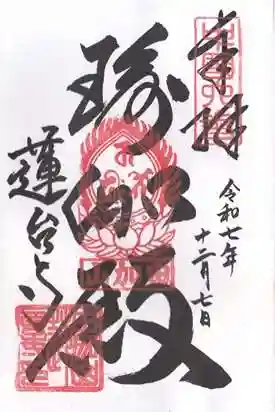 奉拝
令和七年
十二月七日
瑜伽殿
蓮台寺